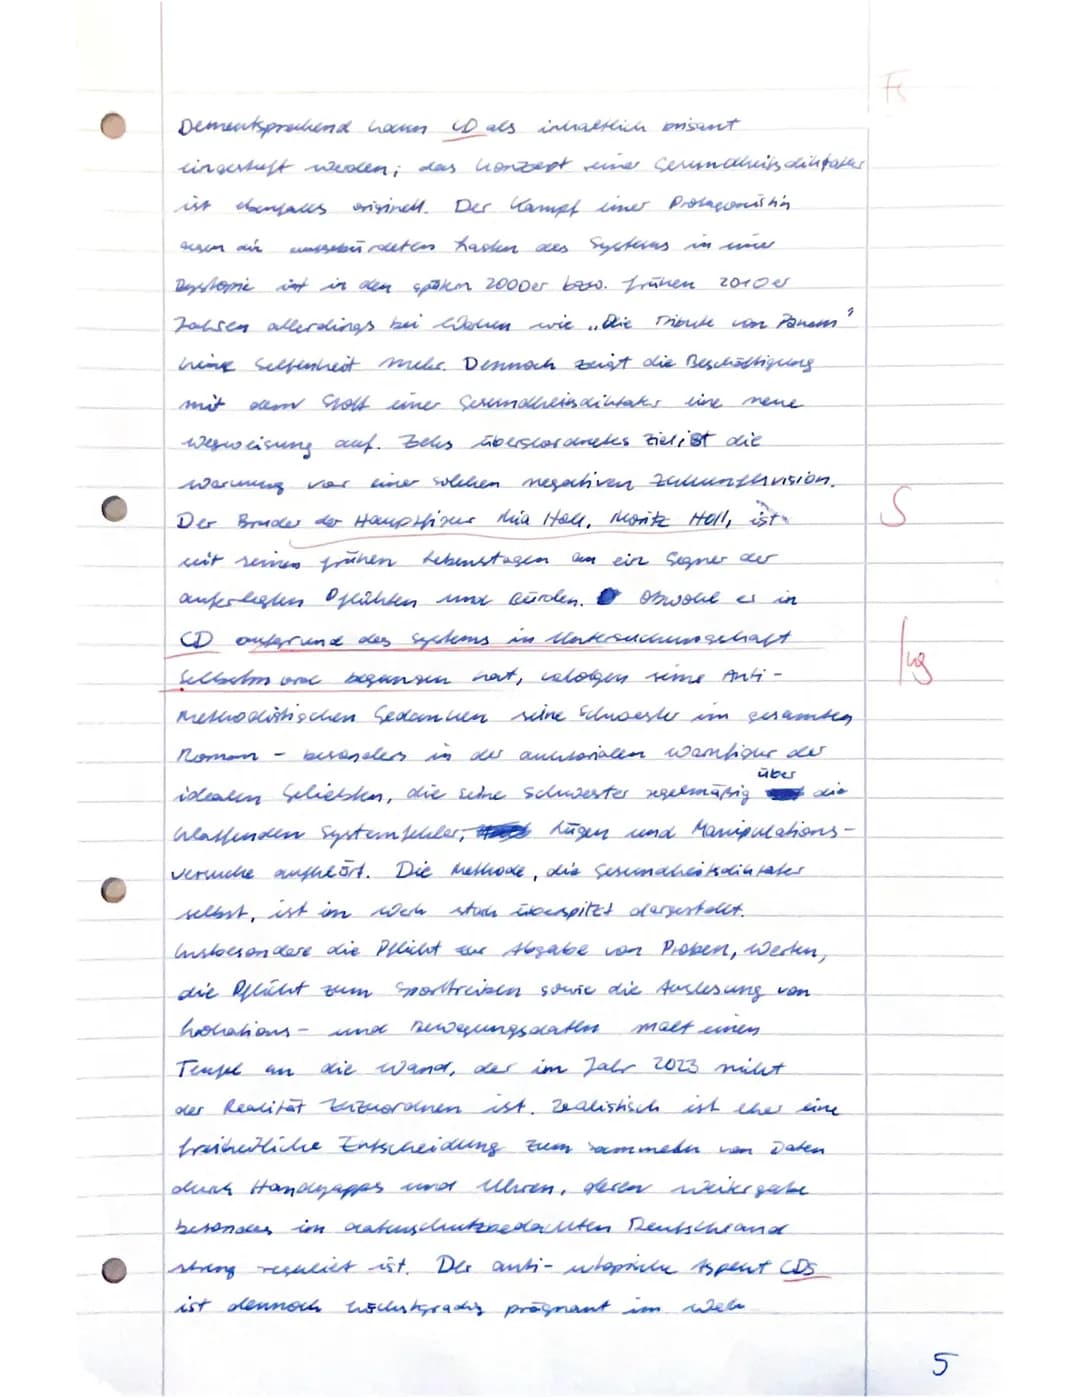 Fs
Dementsprechend kann CD als inhaltlich brisant
eingestuft werden; das Konzept einer Gesundheitsdiktatur
ist ebenfalls originell. Der Kampf einer Protagonistin
gegen die aufgebürdeten Lasten des Systems in einer
Dystopie ist in den späten 2000er bzw. frühen 2010er
Jahren allerdings bei Werken wie „Die Tribute von Panem"
keine Seltenheit mehr. Dennoch zeigt die Beschäftigung
mit dem Stoff einer Gesundheitsdiktatur eine neue
Wegweisung auf. Zehs übergeordnetes Ziel ist die
Warnung vor einer solchen negativen Zukunftsvision.
Der Bruder der Hauptfigur Mia Holl, Moritz Holl, ist
S
seit seinen frühen Lebenstagen an ein Gegner der
auferlegten Pflichten und Bürden. Obwohl er in
CD aufgrund des Systems in Untersuchungshaft
Selbstmord begangen hat, verfolgen seine Anti-
Methodistischen Gedanken seine Schwester im gesamten
Roman - besonders in der Warnfigur der
idealen Geliebten, die seine Schwester regelmäßig über die
klaffenden Systemfehler, Lügen und Manipulations-
versuche aufklärt. Die Methode, die Gesundheitsdiktatur
selbst, ist im Werk stark überspitzt dargestellt.
Insbesondere die Pflicht zur Abgabe von Proben, Werten,
die Pflicht zum Sporttreiben sowie die Auslesung von
Lokations- und Bewegungsdaten malt einen
Teufel an die Wand, der im Jahr 2023 nicht
der Realität zuzuordnen ist. Realistisch ist eher eine
freiheitliche Entscheidung zum Sammeln von Daten
durch Handyapps und Uhren, deren Weitergabe
besonders im datenschutzbedachten Deutschland
streng reguliert ist. Der anti-utopische Aspekt CDs
ist dennoch höchstgradig prägnant im Werk
5